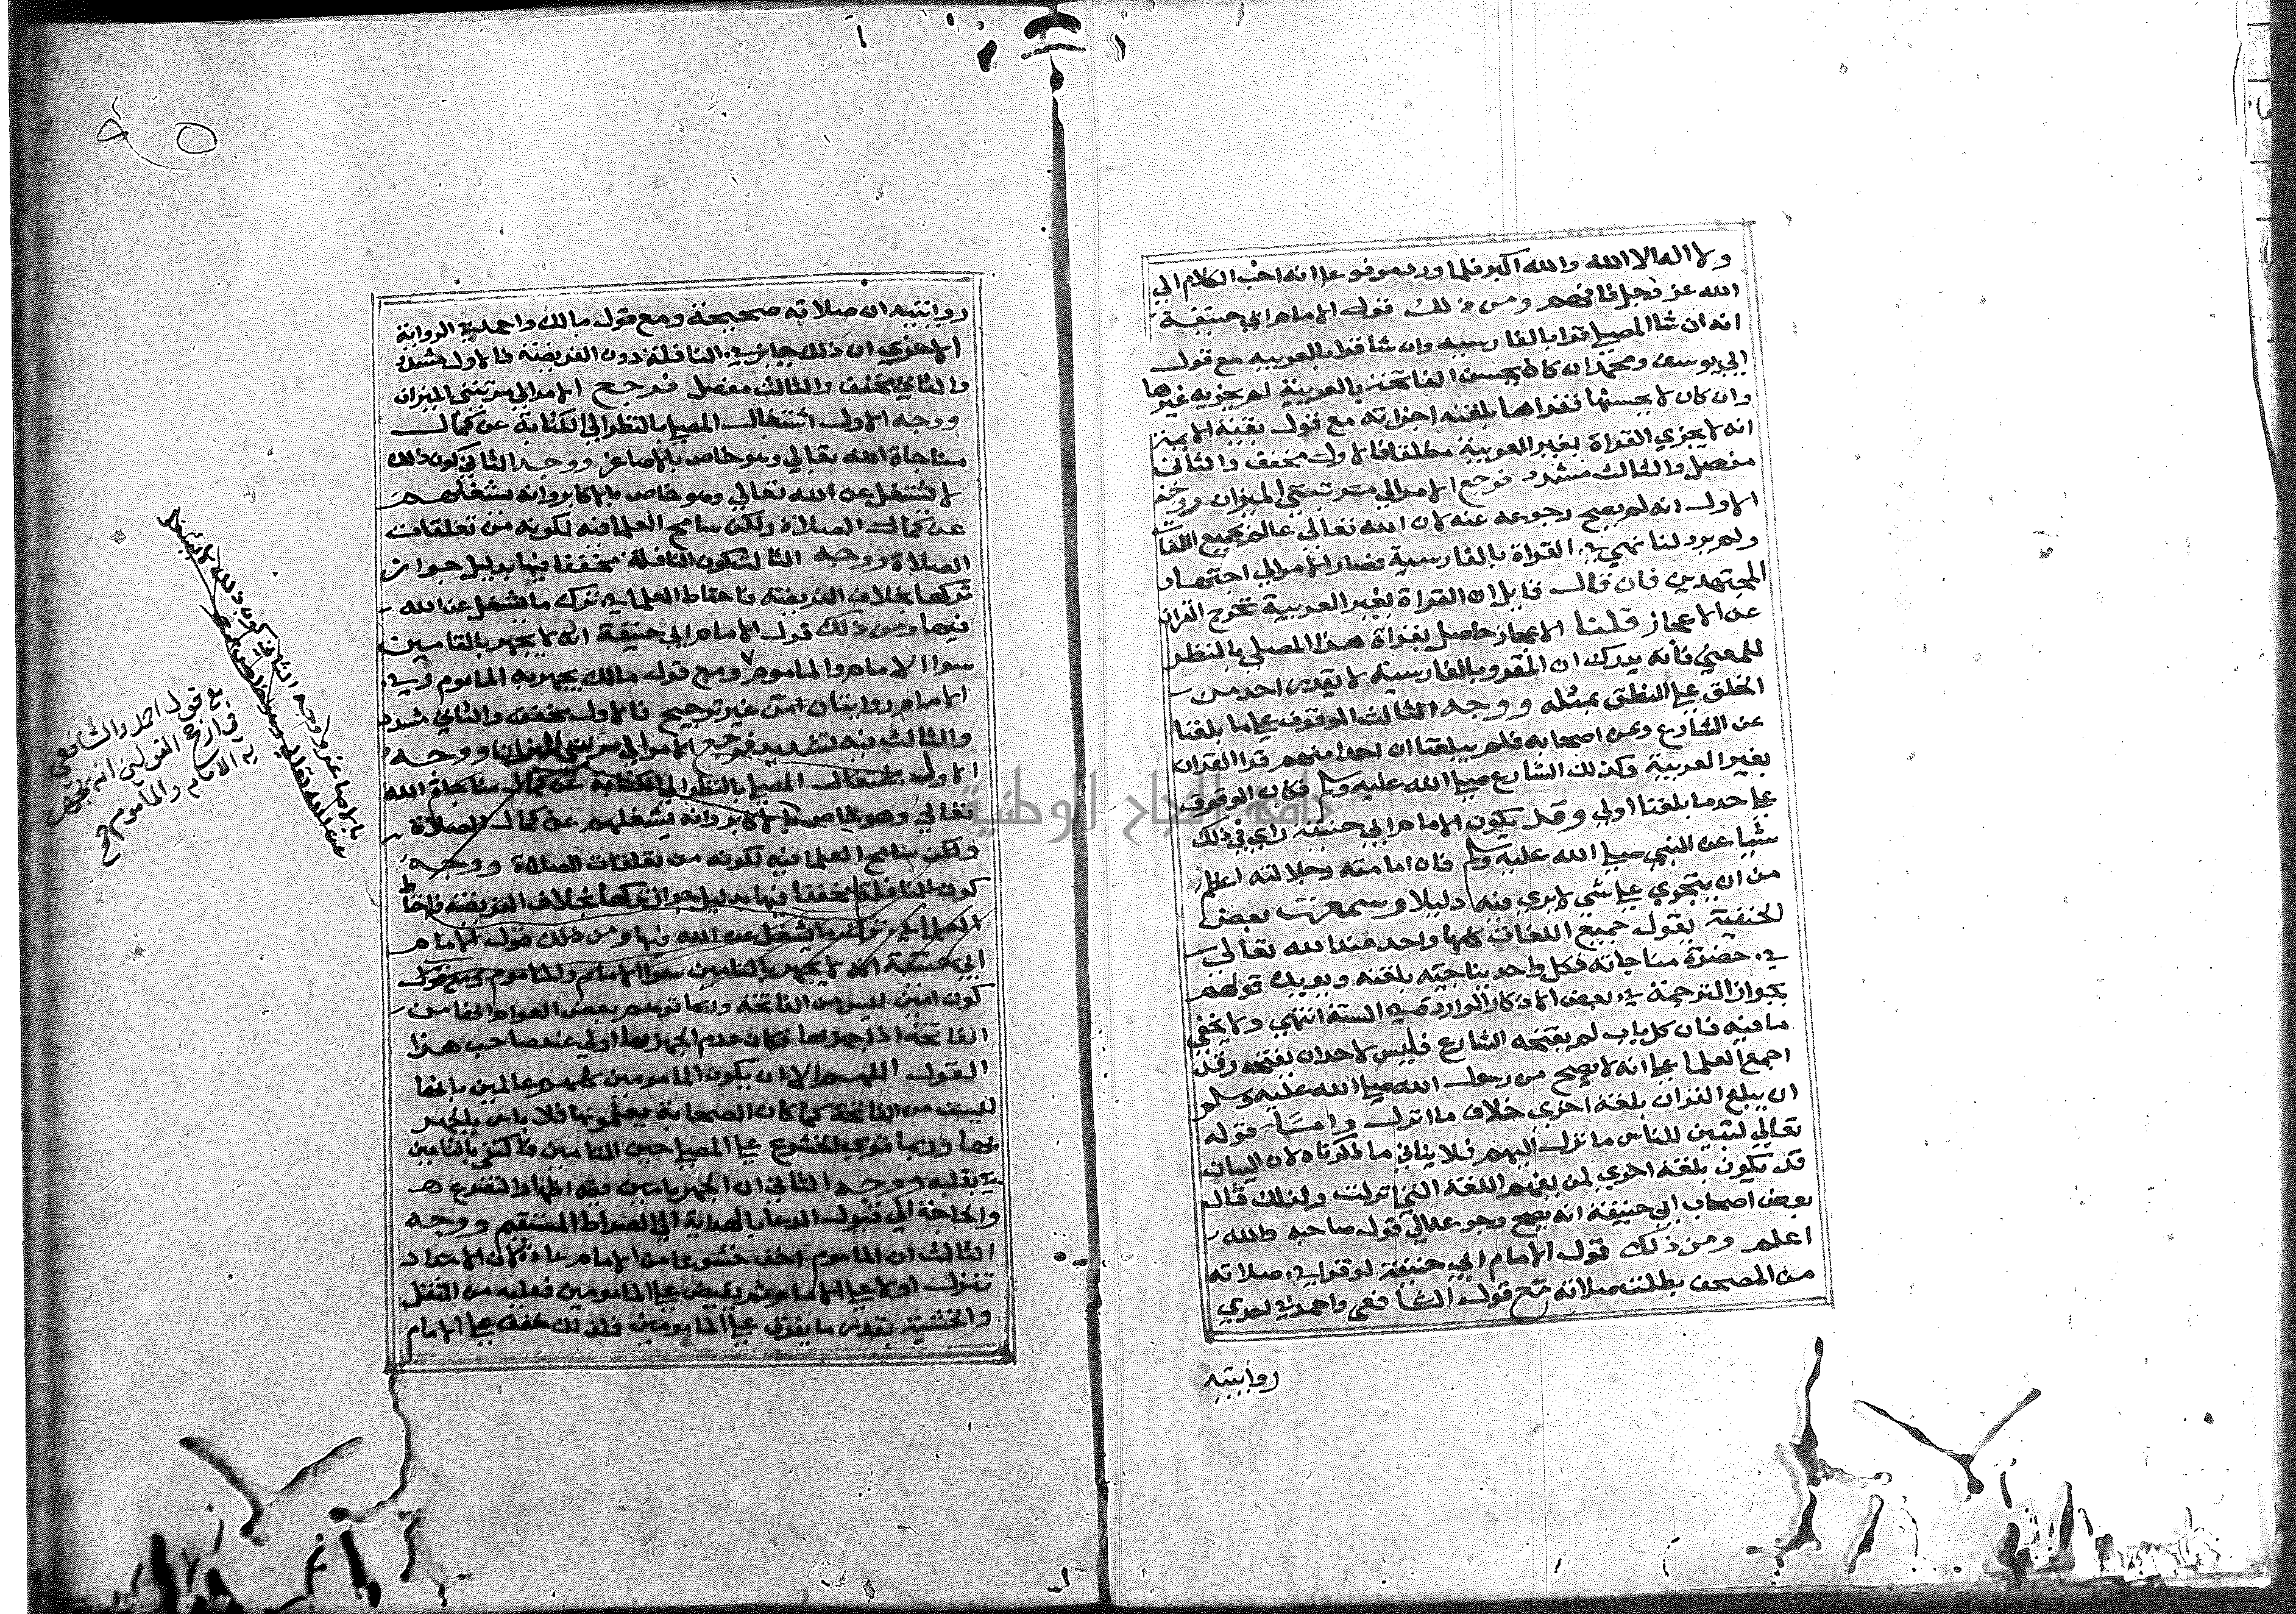 ولا اله الا الله والله اكبر فلما ورد مرفوعا انه احب الكلام الي
الله عز وجل فافهم ومن ذلك قول الامام ابي حنيفة
انه ان شا المصلي قرا بالفارسيه وان شا قرا بالعربيه مع قول
ابي يوسف ومحمد ان كان يحسن الفاتحة بالعربية لم يجزيه غيرها
وان كان لا يحسنها فقراها بلغته اجزاته مع قول بقية الايمة
انه لا يجزي القراة بغير العربية مطلقا فالاول مخفف والثاني
مفصل والثالث مشدد فرجع الامر الي مرتبتي الميزان ووجه
الاول انه لم يصح رجوعه عنه لان الله تعالي عالم بجميع اللغات
ولم يرد لنا نهي في القراة بالفارسية فصار الامر الي اجتهاد
المجتهدين فان قال قايل ان القراة بغير العربية تخرج القران
عن الاعجاز قلنا الاعجاز حاصل بقراة هذا المصلي بالنظر
للمعني فانه يدرك ان المقرو بالفارسية لا يقدر احد من
الخلق علي النطق بمثله ووجه الثالث الوقوف علي ما بلغنا
عن الشارع وعن اصحابه فلم يبلغنا ان احدا منهم قرا القران
بغير العربية وكذلك الشارع صلي الله عليه وسلم فكان الوقوف
علي حد ما بلغنا اولي وقد يكون الامام ابي حنيفة راي في ذلك
شيا عن النبي صلي الله عليه وسلم فان امامته وجلالته اعظم
من ان يتجري علي شي لا يري فيه دليلا وسمعت بعض
الحنفية يقول جميع اللغات كلها واحد عند الله تعالي
في حضرة مناجاته فكل واحد يناجيه بلغته ويويد قولهم
بجواز الترجمة في بعض الاذكار الواردة في السنة انتهي ولا يخفي
ما فيه فان كل باب لم يفتحه الشارع فليس لاحد ان يفتحه وقد
اجمع العلما علي انه لا يصح من رسول الله صلي الله عليه وسلم
ان يبلغ القران بلغة اخري خلاف ما انزل واما قوله
تعالي لتبين للناس ما نزل اليهم فلا ينافي ما ذكرناه لان البيان
قد يكون بلغة اخري لمن يفهم اللغة التي نزلت ولذلك قال
بعض اصحاب ابي حنيفة انه يصح رجوعه الي قول صاحبه والله
اعلم ومن ذلك قول الامام ابي حنيفة لو قرا في صلاته
من المصحف بطلت صلاته مع قول الشافعي واحمد في احدي
روايتيه
روايتيه ان صلاته صحيحة ومع قول مالك واحمد في الرواية
الاخري ان ذلك جايز في النافلة دون الفريضة فالاول مشدد
والثاني مخفف والثالث مفصل فرجع الامر الي مرتبتي الميزان
ووجه الاول اشتغال المصلي بالنظر الي الكتابة عن كمال
مناجاة الله تعالي وهو خاص بالاصاغر ووجه الثاني كون ذلك
لا يشغل عن الله تعالي وهو خاص بالاكابر وانه يشغلهم
عن كمال الصلاة ولكن سامح العلما فيه لكونه من تعلقات
الصلاة ووجه الثالث كون النافلة مخففا فيها بدليل جواز
تركها بخلاف الفريضة فاحتاط العلما في ترك ما يشغل عن الله
فيها ومن ذلك قول الامام ابي حنيفة انه لا يجهر بالتامين
سوا الامام والماموم ومع قول مالك يجهر به الماموم وفي
الامام روايتان من غير ترجيح فالاول مخفف والثاني مشدد
والثالث فيه تشديد فرجع الامر الي مرتبتي الميزان ووجه
الاول اشتغال المصلي بالنظر الي الكتابة عن كمال مناجاة الله
تعالي وهو خاص بالاكابر وانه يشغلهم عن كمال الصلاة
ولكن سامح العلما فيه لكونه من تعلقات الصلاة ووجه
كون النافلة مخففا فيها بدليل جواز تركها بخلاف الفريضة فاحتاط
العلما في ترك ما يشغل عن الله فيها ومن ذلك قول الامام
ابي حنيفة انه لا يجهر بالتامين سوا الامام والماموم ومع قول
كون امين ليس من الفاتحة وربما توهم بعض العوام انها من
الفاتحة اذا جهر بها فكان عدم الجهر بها اولي عند صاحب هذا
القول اللهم الا ان يكون المامومين كلهم عالمين بانها
ليست من الفاتحة كما كان الصحابة يعلمونها فلا باس بالجهر
بها وربما قوي الخشوع علي المصلي حين التامين فاكتفي بالتامين
في بقلبه ووجه الثاني ان الجهر بامين فيه اظهار التضرع
والحاجة الي قبول الدعا بالهداية الي الصراط المستقيم ووجه
الثالث ان الماموم اخف خشوعا من الامام عادة لان الامداد
تنزل اولا علي الامام ثم يفيض علي المامومين فعليه من الثقل
والخشية بقدر ما يفرق علي المامومين فلذلك خفف علي الامام
مع قول احمد والشافعي
في ارجح القولين انه يجهر
به الامام والماموم صح